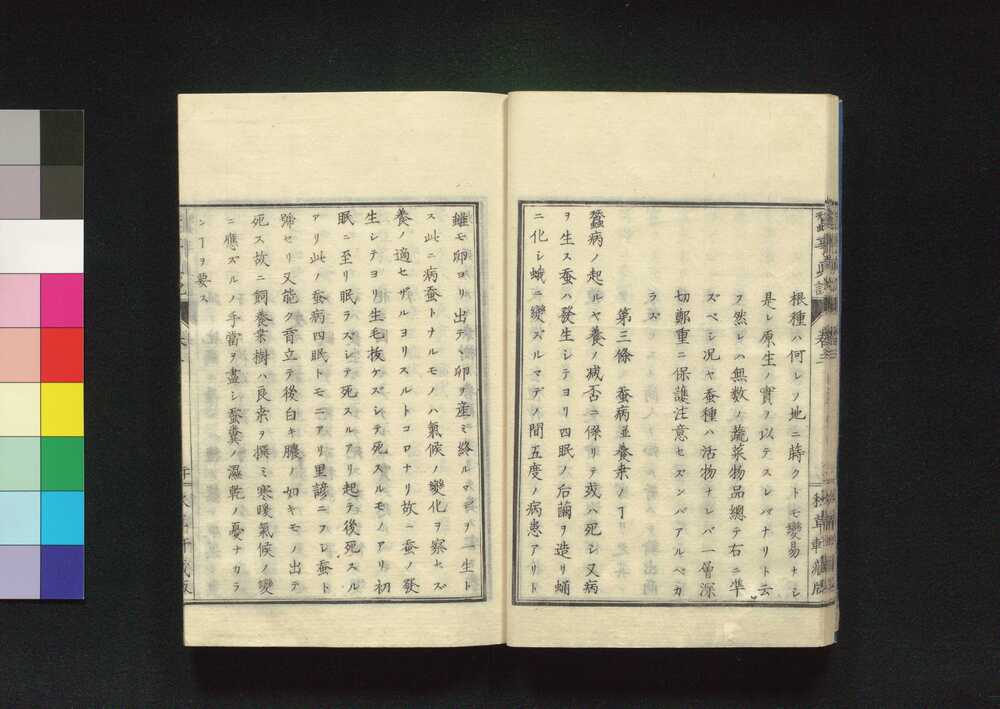 卷三
根種ハ何レノ地ニ蒔クトモ變易ナシ
是レ原生ノ實ヲ以テスレバナリト云
フ然レハ無數ノ蔬菜物品總テ右ニ準
ズベシ况ヤ蚕種ハ活物ナレバ一層深
切鄭重ニ保護注意セズンバアルベカ
ラズ
第三條 蚕病並養桒ノヿ
蠶病ノ起ルヤ養ノ减否ニ係リテ或ハ死シ又病
ヲ生ス蚕ハ發生シテヨリ四眠ノ后繭ヲ造リ蛹
ニ化シ蛾ニ變ズルマデノ間五度ノ病患アリト
雖モ卵ヨリ出テヽ卵ヲ產ミ終ルマテヲ一生ト
ス此ニ病蚕トナルモノハ氣候ノ變化ヲ察セズ
養ノ適セザルヨリスルトコロナリ故ニ蚕ノ發
生シテヨリ生毛拔ケズシテ死スルモノアリ初
眠ニ至リ眠ラズシテ死スルアリ起テ後死スル
アリ此ノ蚕病四眠トモニアリ里諺ニフシ蚕ト
號セリ又能ク育立テ後白キ膿ノ如キモノ出テ
死ス故ニ飼養桒樹ハ良桒ヲ撰ミ寒暖氣候ノ變
ニ應ズルノ手當ヲ盡シ蚕糞ノ濕乾ノ憂ナカラ
ンヿヲ要ス